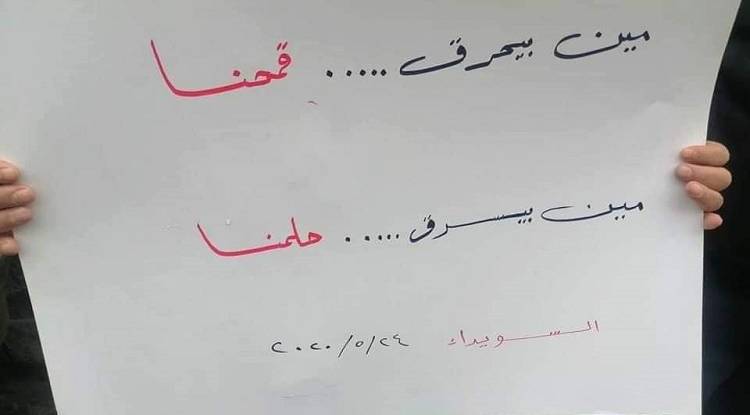 مين بيحرق ..... قمحنا
مين بيسرق ..... حلمنا
السويداء ٢٠٢٠/٥/٢٤